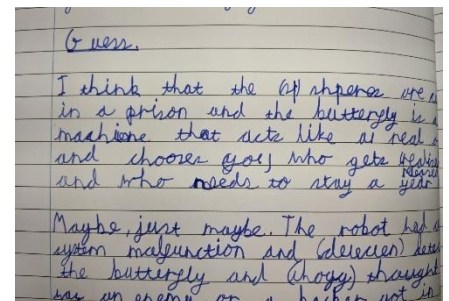 Guess.
I think that the spheres are
in a prison and the butterfly is a
machine that acts like a real
and chooses who gets
released
and who needs to stay a year
Maybe, just maybe. The robot had a
system malfunction and
the butterfly and thought
was an enemy or a hacker not in